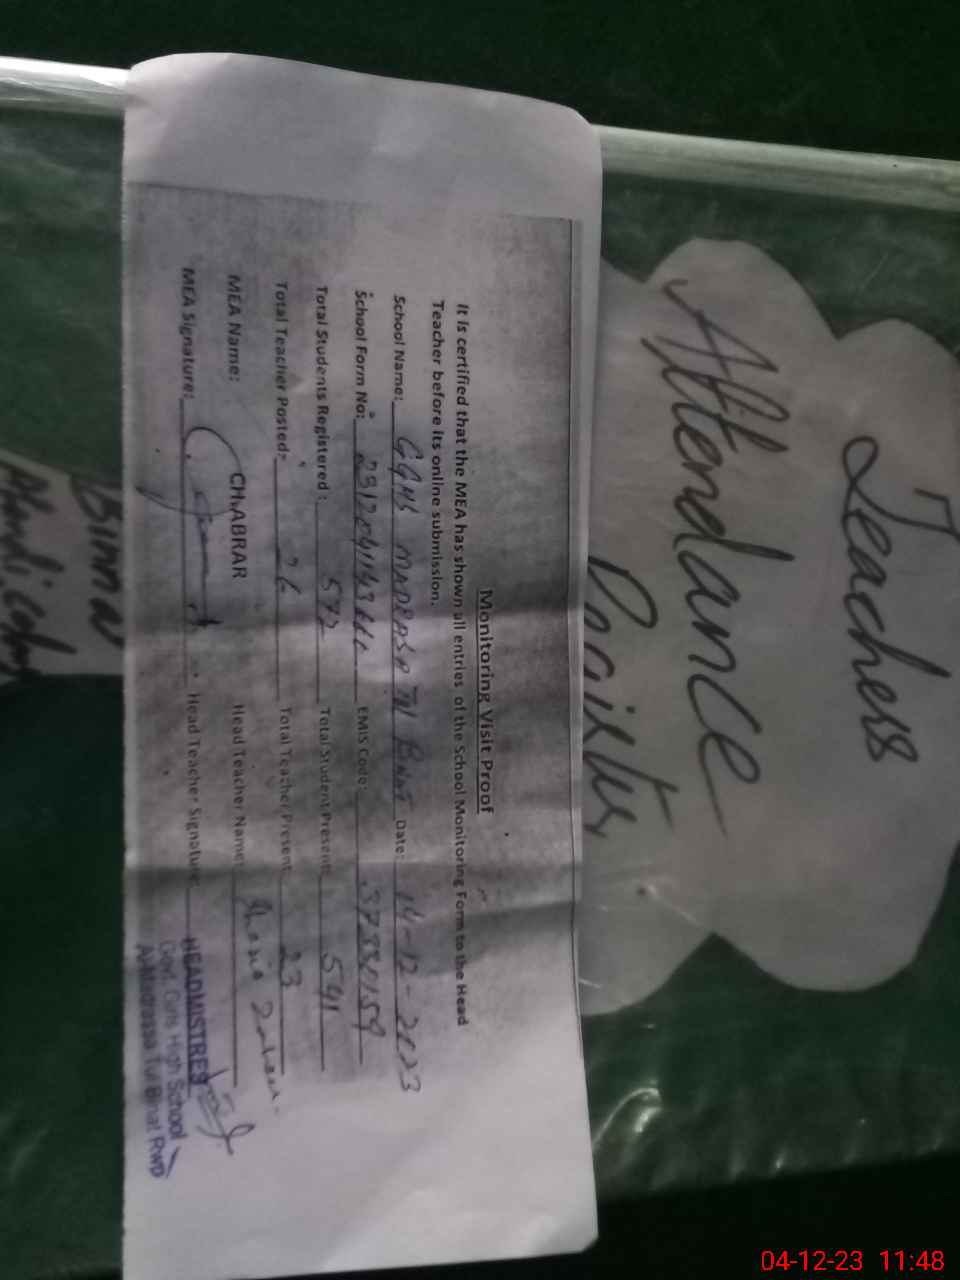 Teachers
Attendance
Monitoring Visit Proof
It is certified that the MEA has shown all entries of the School Monitoring Form to the Head
Teacher before its online submission.
School Name: GGHS MADRASA TW BHAT Date: 14-12-2023
School Form No: EMIS Code: 37330159
Total Students Registered: 572 Total Student Present: 541
Total Teacher Posted: 26 Total Teacher Present: 23
MEA Name: CH.ABRAR Head Teacher Name:
MEA Signature: Head Teacher Signature:
HEADMISTRESS
Govt. Girls High School
Binna
04-12-23 11:48